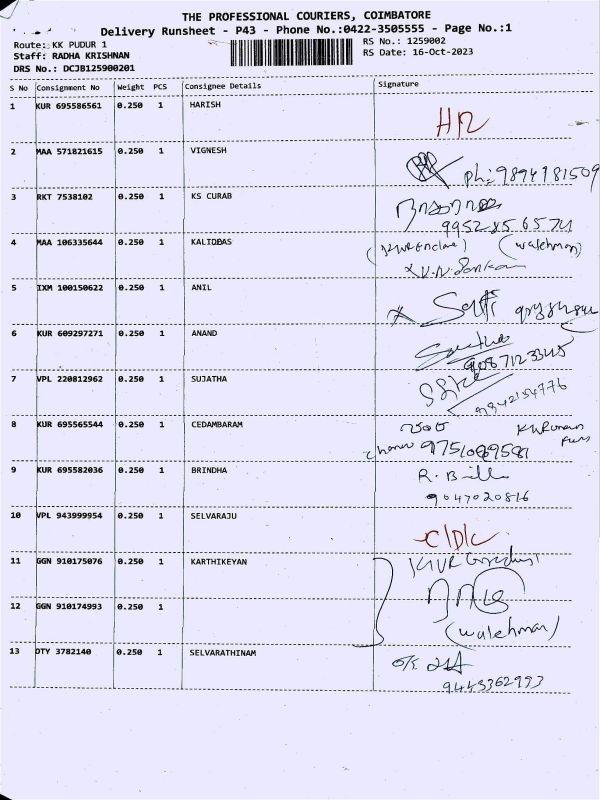 THE PROFESSIONAL COURIERS, COIMBATORE
Delivery Runsheet - P43 - Phone No.:0422-3505555 - Page No.:1
Route: KK PUDUR 1 RS No.: 1259002
Staff: RADHA KRISHNAN RS Date: 16-Oct-2023
DRS No.: DCJB125900201
S No Consignment No Weight PCS Consignee Details Signature
1 KUR 695586561 0.250 1 HARISH
2 MAA 571821615 0.250 1 VIGNESH
ph: 9894181509
3 RKT 7538102 0.250 1 KS CURAB
4 MAA 106335644 0.250 1 KALIDBAS
(watchman)
5 IXM 100150622 0.250 1 ANIL
6 KUR 609297271 0.250 1 ANAND
9087123345
7 VPL 220812962 0.250 1 SUJATHA
9842154776
8 KUR 695565544 0.250 1 CEDAMBARAM
9 KUR 695582036 0.250 1 BRINDHA
9047020816
10 VPL 943999954 0.250 1 SELVARAJU
C/D/C
11 GGN 910175076 0.250 1 KARTHIKEYAN
12 GGN 910174993 0.250 1
(watchman)
13 OTY 3782140 0.250 1 SELVARATHINAM
9443362993